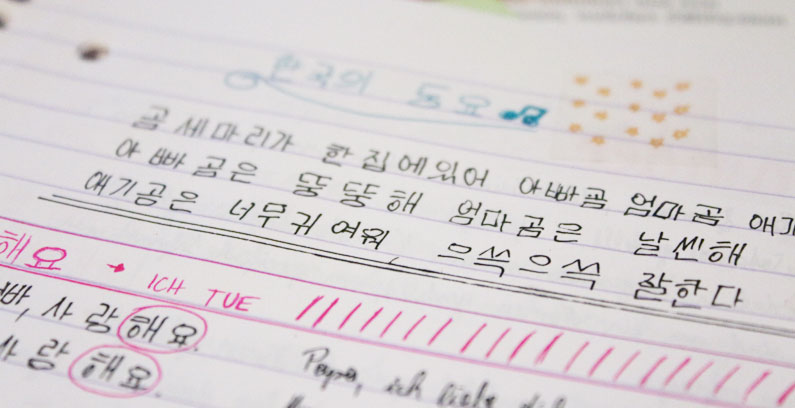 한국의 동요
곰 세마리가 한 집에있어 아빠곰 엄마곰 애기
아빠 곰은 뚱뚱해 엄마곰은 날씬해
애기곰은 너무귀 여워, 으쓱으쓱 잘한다
해요 → ICH TUE
사랑 해요.
사랑 해요.
Papa, ich liebe dich